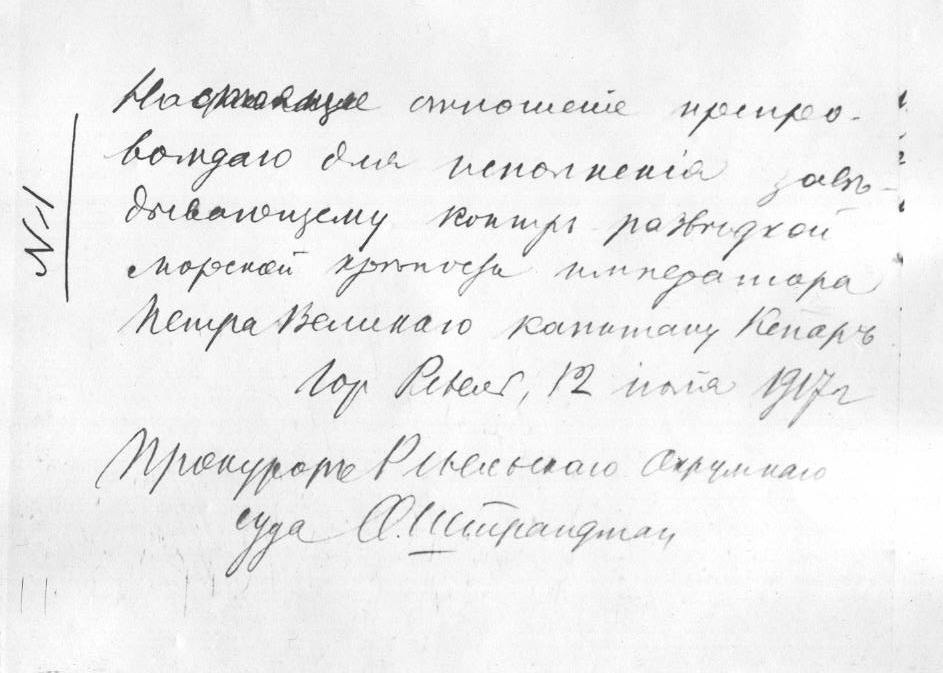 № 1
Настоящее отношенiе препро-
вождаю для исполненiя завѣ-
дывающему контръ развѣдкой
морской крѣпости императора
Петра Великаго капитану Кепаръ
Гор Ревель, 12 iюля 1917 г
Прокуроръ Ревельскаго Окружнаго
суда О. Штрандман